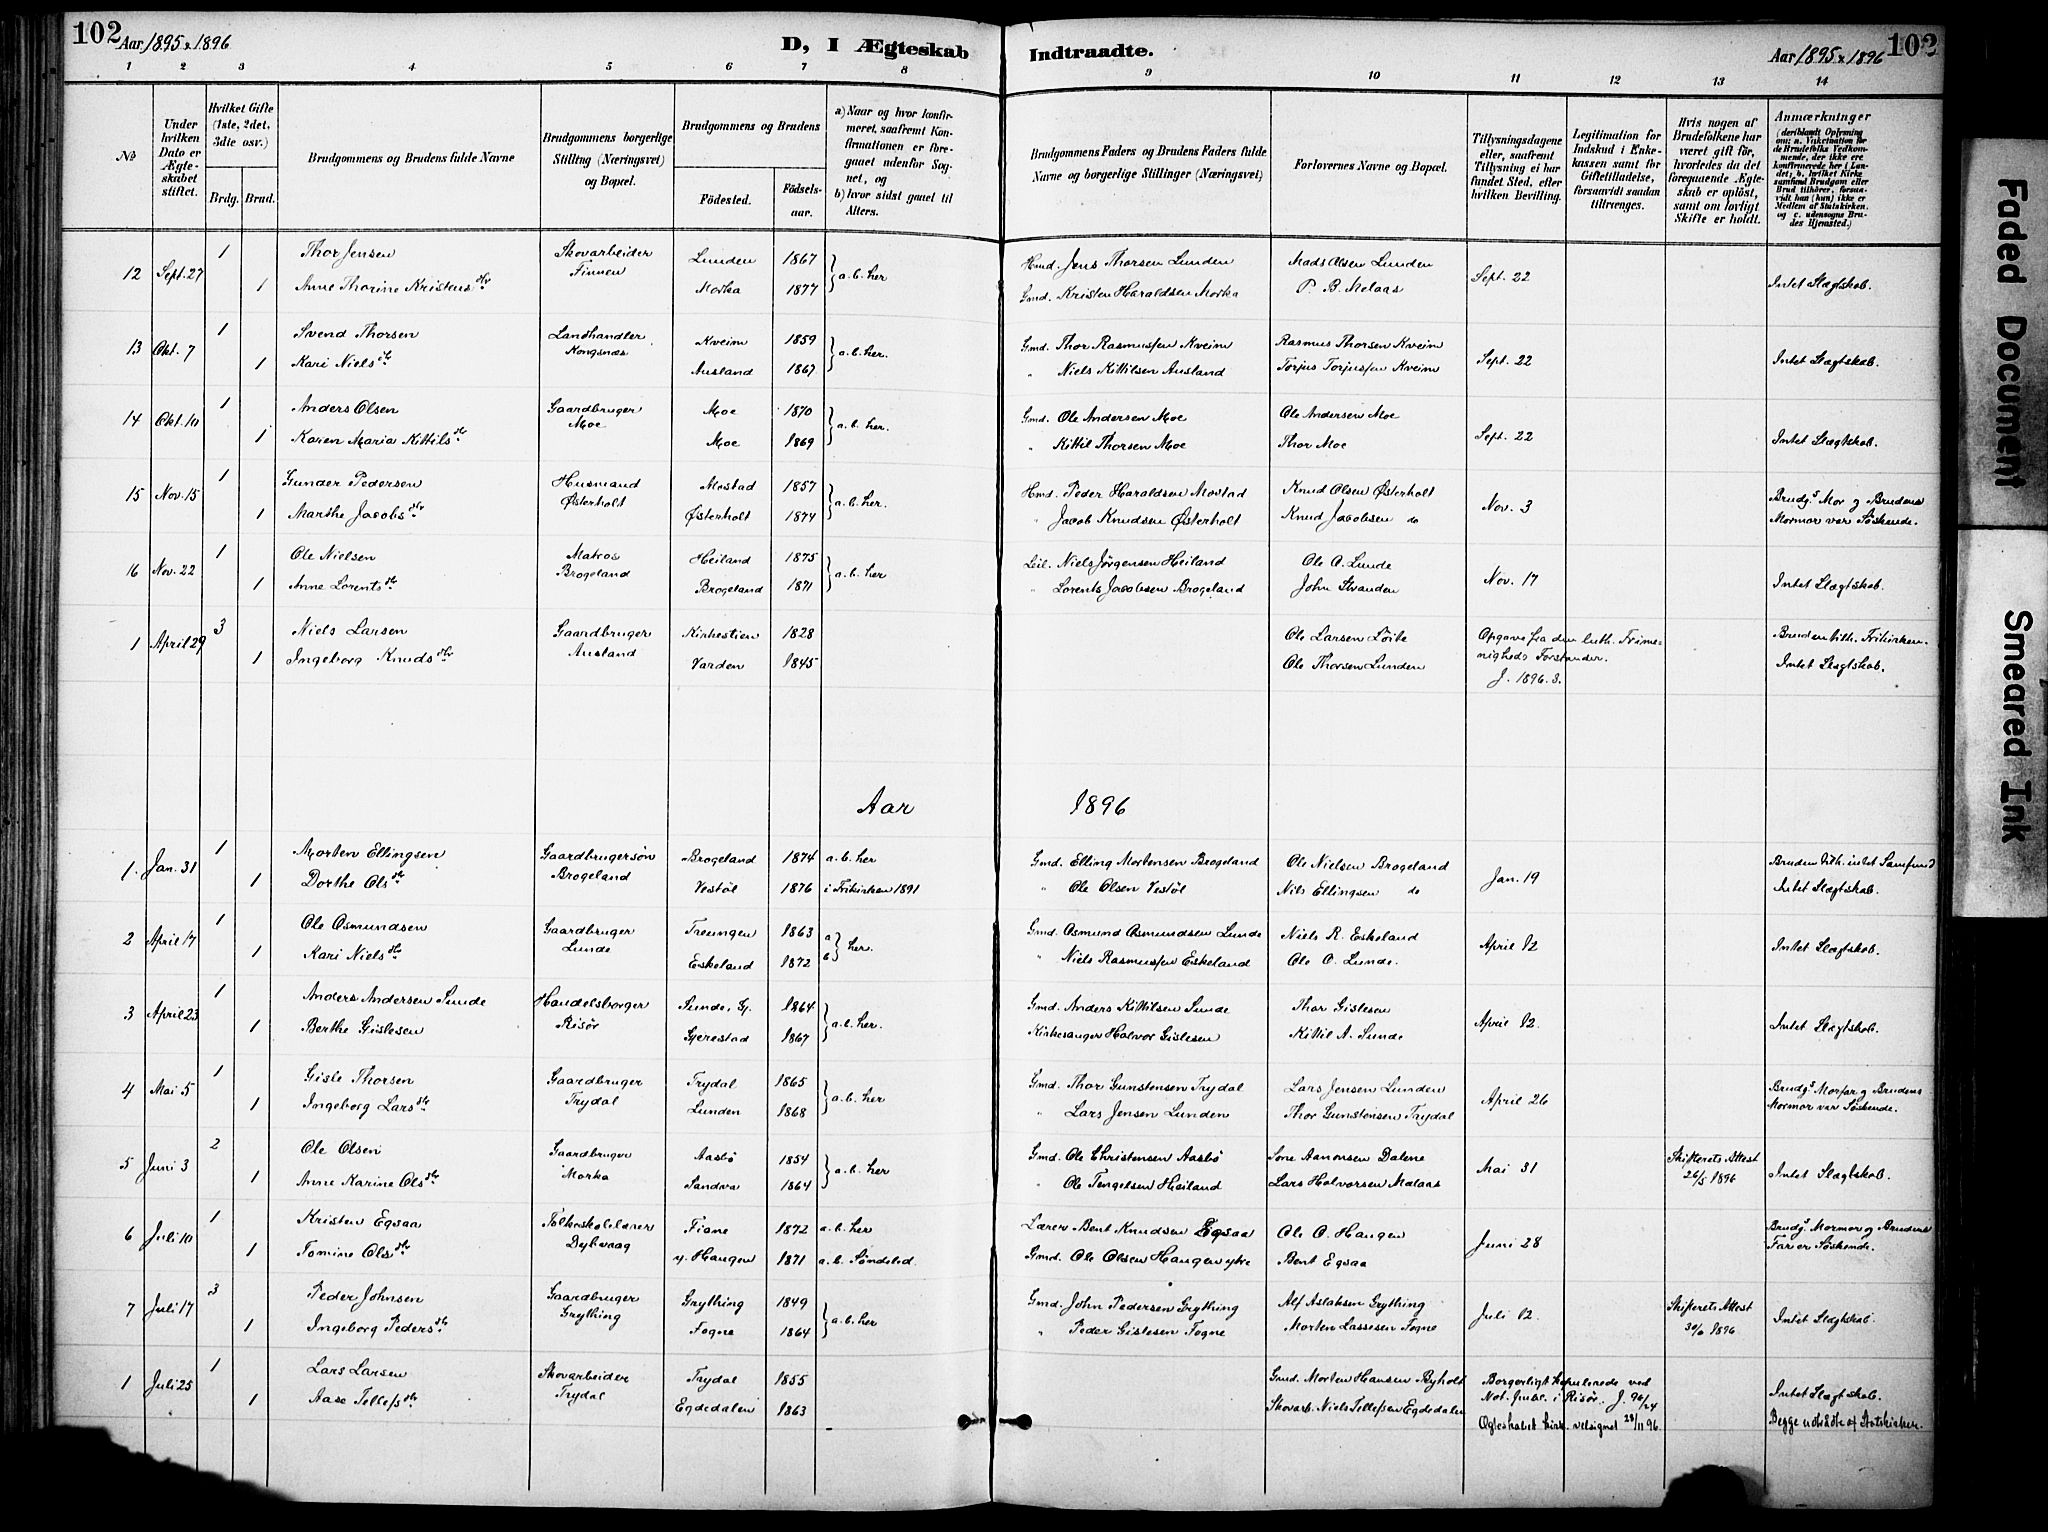 102 Aar 1895 & 1896 D, I Ægteskab Indtraadte. Aar 1895 & 1896 102
1 2 3 4 5 6 7 8 9 10 11 12 13 14
No
Under hvilken Dato er Ægteskabet stiftet.
Hvilket Gifte (1ste, 2det, 3die osv.)
Brdg. Brud.
Brudgommens og Brudens fulde Navne
Brudgommens borgerlige Stilling (Næringsvei) og Bopæl.
Brudgommens og Brudens
Fødested. Fødselsaar.
a) Naar og hvor konfirmeret, saafremt Konfirmationen er foregaaet udenfor Sognet, og
b) hvor sidst gaaet til Alters.
Brudgommens Faders og Brudens Faders fulde Navne og borgerlige Stillinger (Næringsvei)
Forlovernes Navne og Bopæl.
Tillysningsdagene eller, saafremt Tillysning ei har fundet Sted, efter hvilken Bevilling.
Legitimation for Indskud i Enkekassen samt for Giftetilladelse, forsaavidt saadan tiltrænges.
Hvis nogen af Brudefolkene har været gift før, hvorledes da det foregaaende Ægteskab er opløst, samt om lovligt Skifte er holdt.
Anmærkninger
(deriblandt Oplysning om: a. Vaksination for de Brudefolks Vedkommende, der ikke ere konfirmerede her i Landet; b. hvilket Kirkesamfund Brudgom eller Brud tilhører, forsaavidt han (hun) ikke er Medlem af Statskirken, og c. udensogns Brudes Hjemsted.)
12 Sept. 27 1 Thor Jensen Skovarbeider Finnen Lunden 1867 a.b. her Hmd. Jens Thorsen Lunden Mads Olsen Lunden Sept. 22 Intet Slægtskab.
1 Anne Thorine Kristens dtr Morka 1877 Gmd. Kristen Haraldsen Morka P. B. Melaas
13 Okt. 7 1 Svend Thorsen Landhandler Kongsnæs Kveim 1859 a.b. her. Gmd. Thor Rasmussen Kveim Rasmus Thorsen Kveim Sept. 22 Intet Slægtskab.
1 Kari Niels dtr Ausland 1867 " Niels Kittilsen Ausland Torjus Torjussen Kveim
14 Okt. 10 1 Anders Olsen Gaardbruger Moe Moe 1870 a.b. her. Gmd. Ole Andersen Moe Ole Andersen Moe Sept. 22 Intet Slægtskab.
1 Karen Maria Kittils dtr Moe 1869 " Kittil Thorsen Moe Thor Moe
15 Nov. 15 1 Gunder Pedersen Husmand Østerholt Mostad 1857 a.b. her. Hmd. Peder Haraldsen Mostad Knud Olsen Østerholt Nov. 3 Brudg.s Mor og Brudens
1 Marthe Jacobs dtr Østerholt 1874 " Jacob Knudsen Østerholt Knud Jacobsen do Mormor var Søskende.
16 Nov. 22 1 Ole Nielsen Matros Brogeland Heiland 1875 a.b. her Leil. Niels Jørgensen Heiland Ole O. Lunde Nov. 17 Intet Slægtskab.
1 Anne Lorents dtr Brogeland 1871 " Lorents Jacobsen Brogeland John Stranden
1 April 29 3 Niels Larsen Gaardbruger Ausland Kirkestien 1828 Ole Larsen Löite Opgave fra den luth. Frime- Bruden tilh. Frikirken.
1 Ingeborg Knuds dtr Varden 1845 Ole Thorsen Lunden nigheds Forstander. Intet Slægtskab.
J. 1896. 3.
Aar 1896
1. Jan. 31 1 Morten Ellingsen Gaardbrugersøn Brogeland Brogeland 1874 a.b. her Gmd. Elling Mortensen Brogeland Ole Nielsen Brogeland Jan. 19 Bruden tilh. intet Samfund
1 Dorthe Ols dtr Vestöl 1876 i Frikirken 1891 " Ole Olsen Vestöl Nils Ellingsen do Intet Slægtskab.
2 April 17 1 Ole Osmundsen Gaardbruger Lunde Treungen 1863 a b her. Gmd. Osmund Osmundsen Lunde Niels R. Eskeland April 12 Intet Slægtskab.
1 Kari Niels dtr Eskeland 1872 " Niels Rasmussen Eskeland Ole O. Lunde.
3 April 23 1 Anders Andersen Sunde Handelsborger Risør Sunde, G. 1864 a.b. her. Gmd. Anders Kittilsen Sunde Thor Gislesen April 12. Intet Slægtskab.
1 Berthe Gislesen Gjerestad 1867 Kirkesanger Halvor Gislesen Kittil A. Sunde
4 Mai 5 1 Gisle Thorsen Gaardbruger Trydal Trydal 1865 a.b. her Gmd. Thor Gunstensen Trydal Lars Jensen Lunden April 26 Brudg.s Morfar og Brudens
1 Ingeborg Lars dtr Lunden 1868 " Lars Jensen Lunden Thor Gunstensen Trydal Mormor var Søskende.
5 Juni 3 2 Ole Olsen Gaardbruger Morka Aasbö 1854 a.b. her Gmd. Ole Christensen Aasbö Sone Aanonsen Dalene Mai 31 Skifterets Attest 26/5 1896 Intet Slægtskab.
1 Anne Karine Ols dtr Sandvæ 1864 " Ole Tengelsen Heiland Lars Halvorsen Melaas
6 Juli 10 1 Kristen Egsaa Folkeskolelærer Dybvaag Fiane 1872 a.b. her Lærer Bent Knudsen Egsaa Ole O. Haugen Juni 28 Brudg.s Mormor og Brudens
1 Tomine Ols dtr y. Haugen 1871 a.b. Söndeled. Gmd. Ole Olsen Haugen ytre Bent Egsaa Far er Søskende.
7 Juli 17 3 Peder Johnsen Gaardbruger Grytting Grytting 1849 a.b. her Gmd. John Pedersen Grytting Alf Aslaksen Grytting Juli 12. Skifterets Attest 30/6 1896 Intet Slægtskab.
1 Ingeborg Peders dtr Fogne 1864 " Peder Gislesen Fogne Morten Lassesen Fogne
1 Juli 25 1 Lars Larsen Skovarbeider Trydal Trydal 1855 Gmd. Morten Hansen Ryholt Borgerligt kopulerede ved Intet Slægtskab.
1 Aase Tellefs dtr Egdedalen 1863 Skovarb. Niels Tellefsen Egdedalen Not. Publ. i Risør. J. 96/24 Begge udtrådte af Statskirken.
Ægteskabet kirk. velsignet 28/11 96.
Faded Document
Smeared Ink